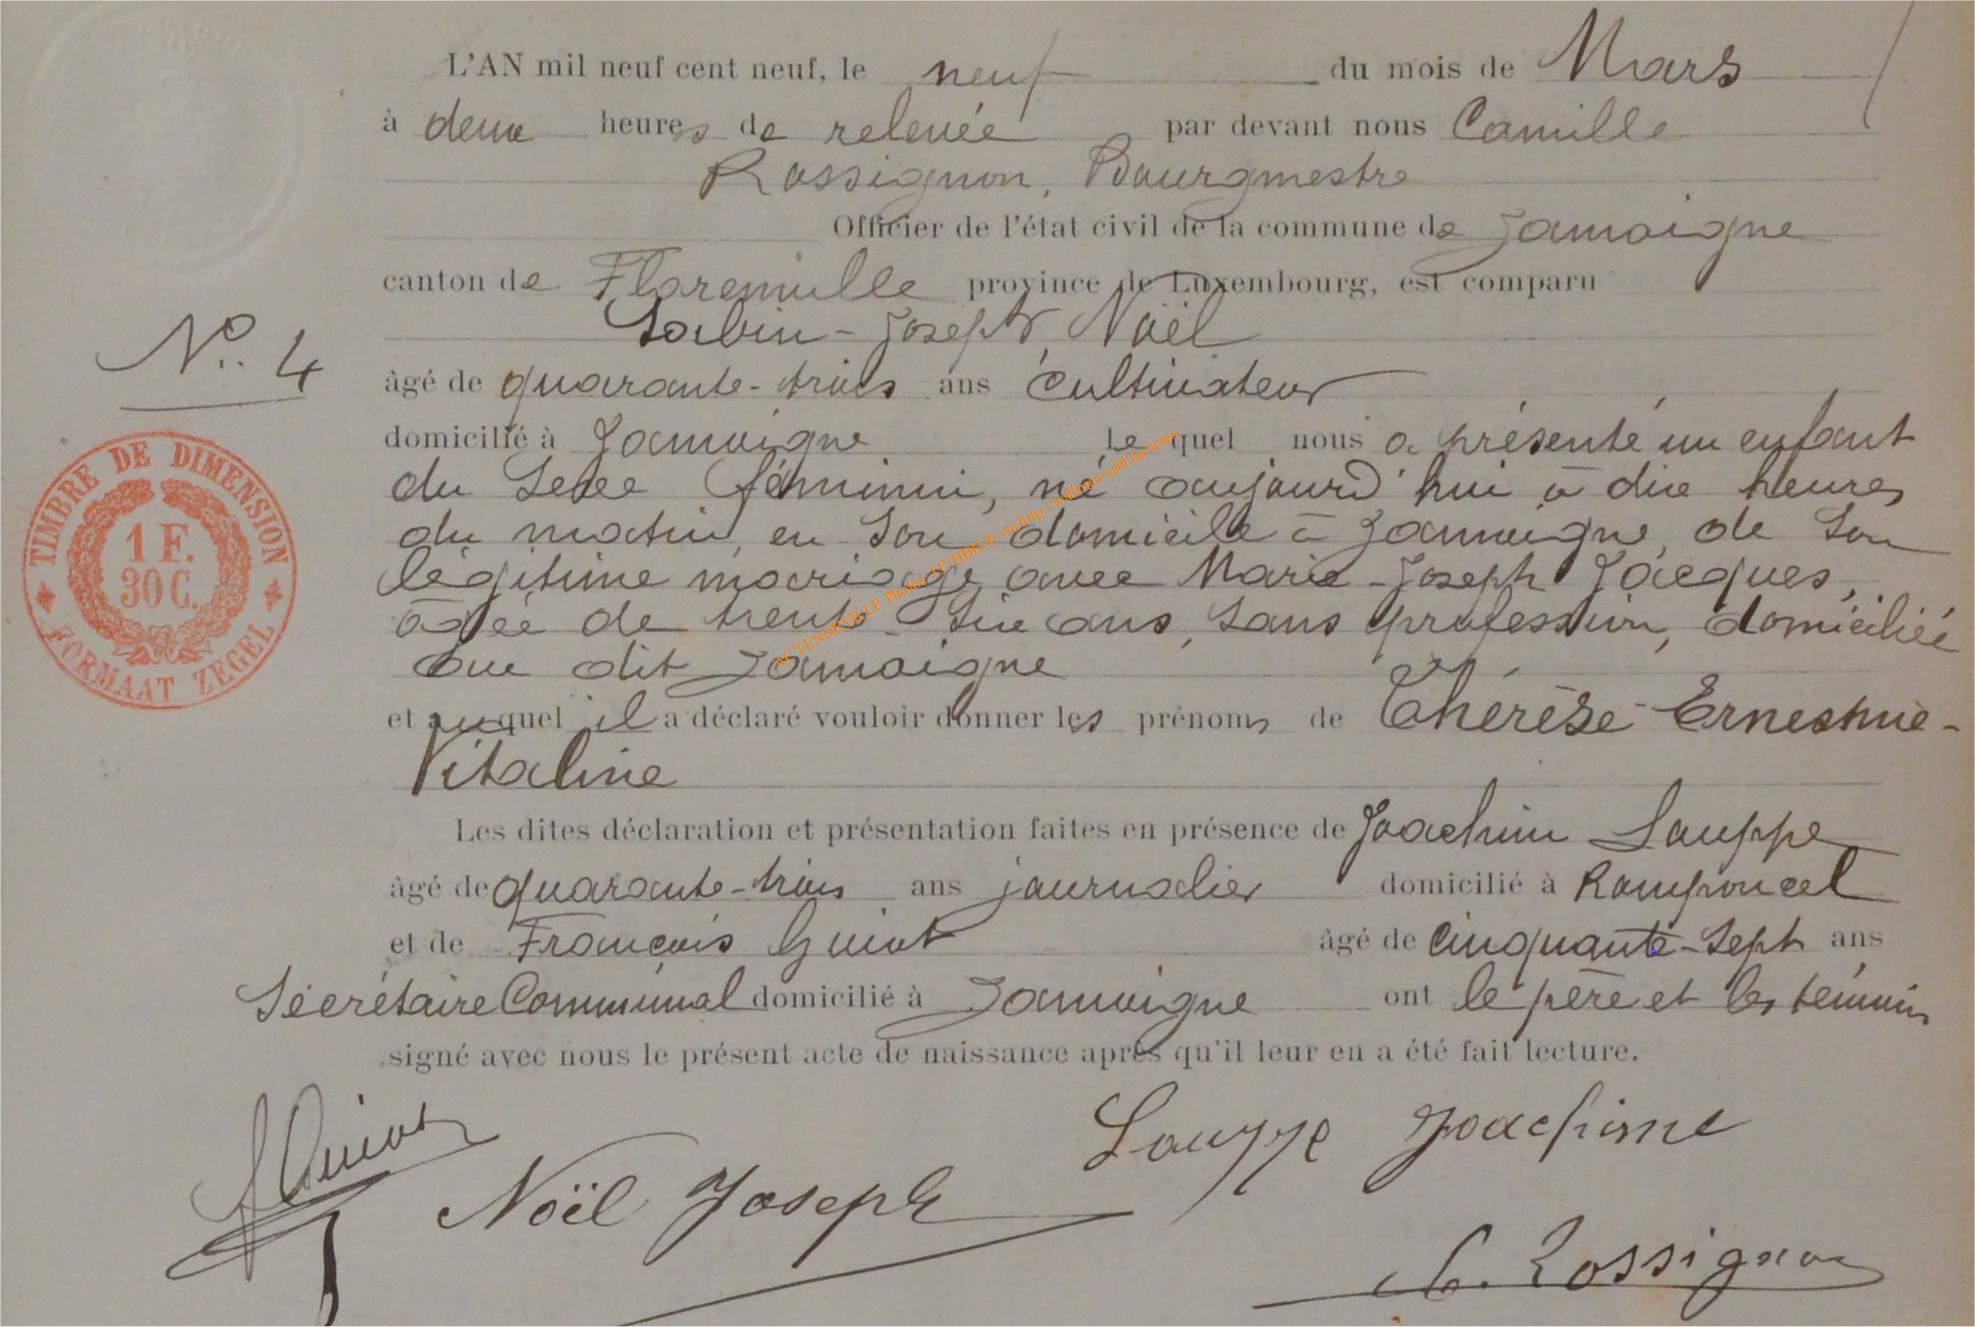 L'AN mil neuf cent neuf, le neuf du mois de Mars
à deux heures de relevée par devant nous Camille
Rossignon, Bourgmestre
Officier de l'état civil de la commune de Jamoigne
canton de Florenville province de Luxembourg, est comparu
Sabin-Joseph Noël
N° 4
âgé de quarante-trois ans cultivateur
domicilié à Jamoigne lequel nous a présenté un enfant
du sexe féminin, né aujourd'hui à dix heures
du matin, en son domicile à Jamoigne, de son
légitime mariage avec Marie-Joseph Jacques,
âgée de trente-six ans, sans profession, domiciliée
au dit Jamoigne
et auquel il a déclaré vouloir donner les prénoms de Thérèse-Ernestine-
Vitaline
Les dites déclaration et présentation faites en présence de Joachim Lauppe
âgé de quarante-trois ans journalier domicilié à Romponcel
et de François Guiot âgé de cinquante-sept ans
Sécrétaire Communal domicilié à Jamoigne ont le père et les témoins
signé avec nous le présent acte de naissance après qu'il leur en a été fait lecture.
F Guiot
Noël Joseph
Lauppe Joachim
C. Rossignon
TIMBRE DE DIMENSION
1 F.
30 C.
FORMAAT ZEGEL